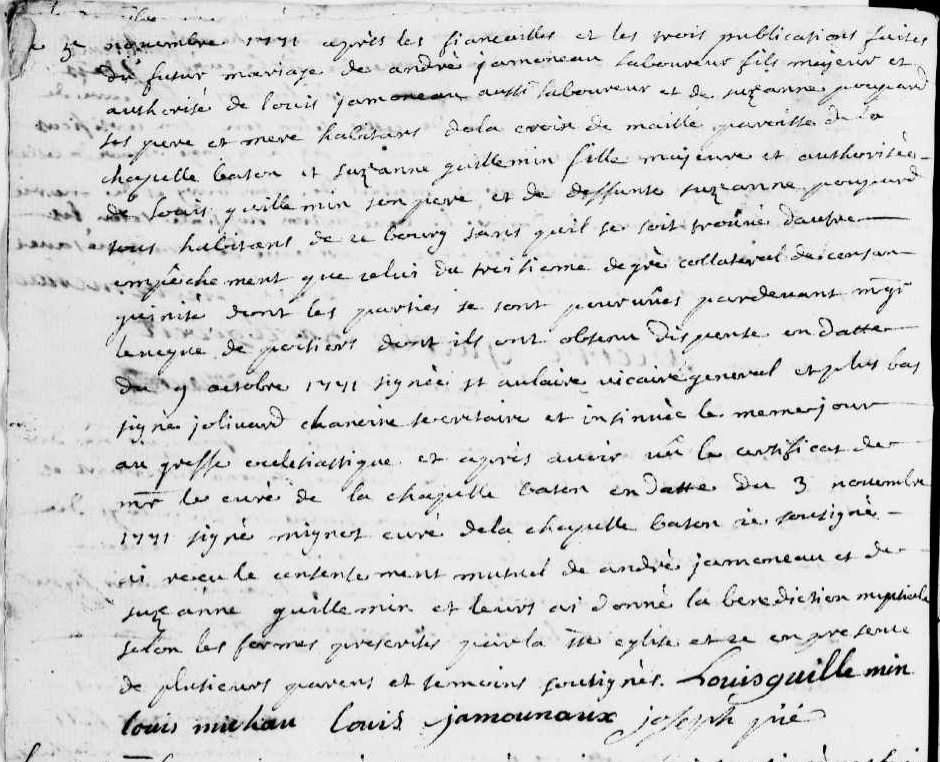 le 5e novembre 1771 après les fiancailles et les trois publications faites
du futur mariage de andrè jamoneau laboureur fils majeur et
authorisé de louis jamoneau aussi laboureur et de suzanne poupard
ses pere et mere habitans dela croix de maille paroisse de la
chapelle baton et suzanne guillemin fille majeure et authorisée
de louis guillemin son pere et de deffunte suzanne poupard
tous habitans de ce bourg sans quil se soit trouvé dautre
empêchement que celui du troisieme degrè collateral de consan
guinité dont les parties se sont pourvûes pardevant mgr
leveque de poitiers dont ils ont obtenu dispense en datte
du 9 octobre 1771 signée st aulaire vicaire general et plus bas
signé jolivard chanoine secretaire et insinuée le meme jour
au greffe ecclesiastique et après avoir vû le certificat de
mr le curé de la chapelle baton en datte du 3 novembre
1771 signé mignot curé dela chapelle baton je sousigné
ai recu le consentement mutuel de andrè jamoneau et de
suzanne guillemin et leurs ai donné la benediction nuptiale
selon les formes prescrites par la ste eglise et ce en presence
de plusieurs parens et temoins sousignés. Louis guillemin
louis michau louis jamounaux joseph pié